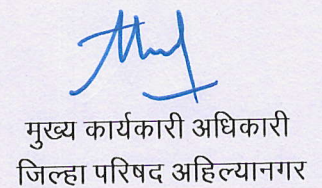 मुख्य कार्यकारी अधिकारी
जिल्हा परिषद अहिल्यानगर